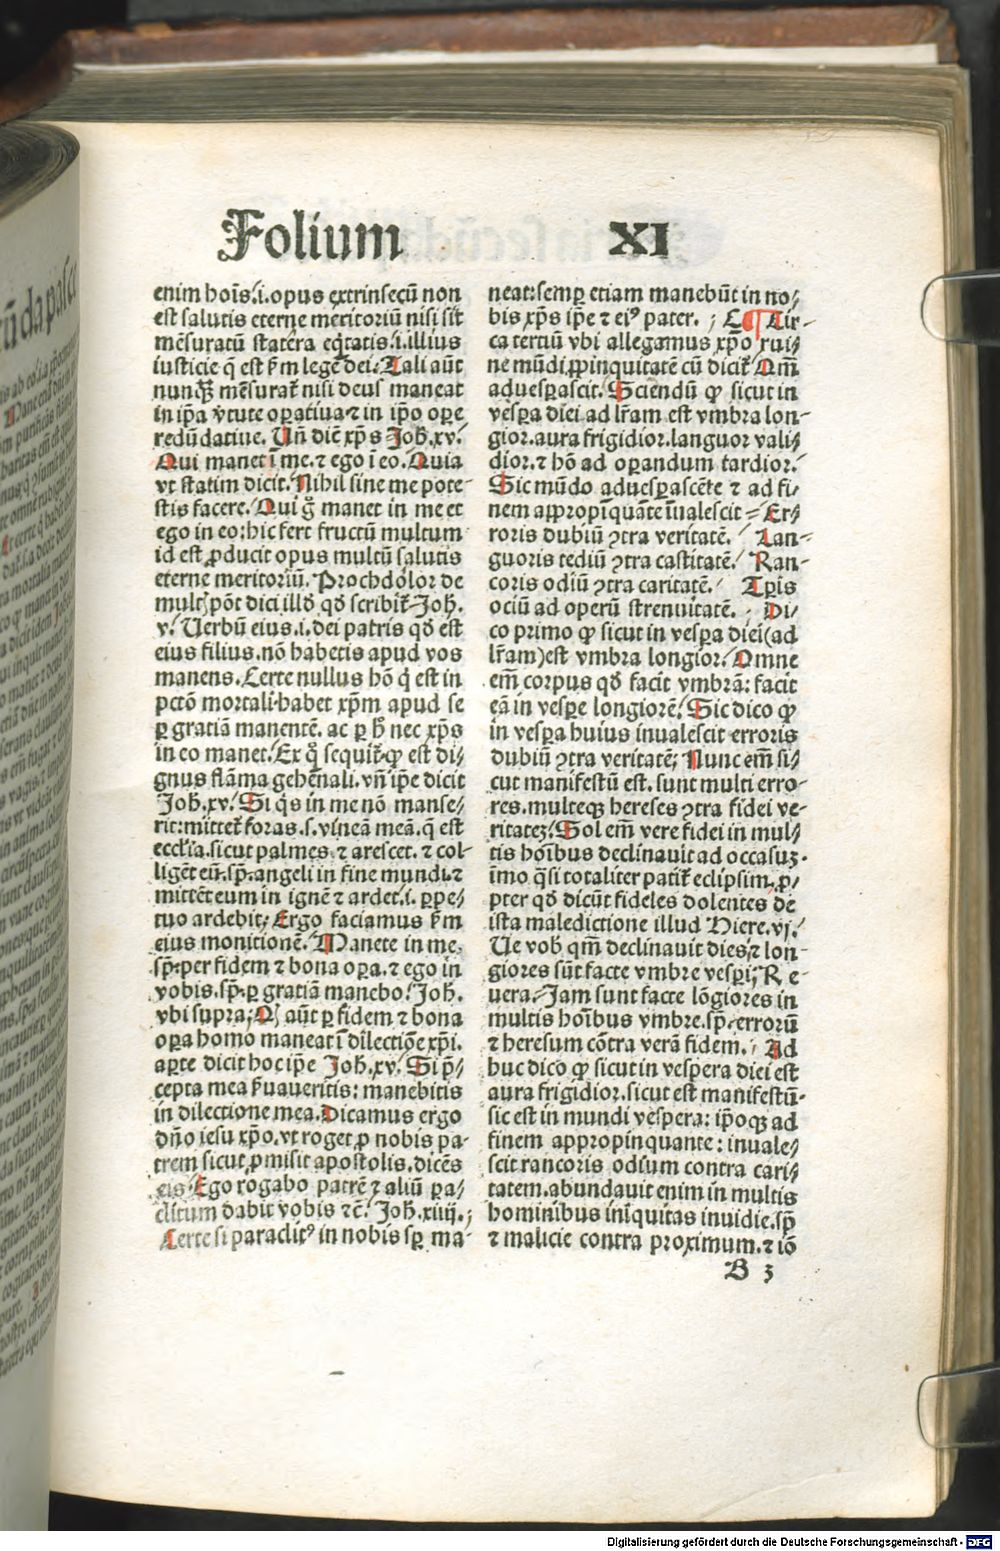 Folium XI
enim hoīs.i.opus extrinsecū non
est salutis eterne meritoriū nisi sit
mēsuratū statera eq̄tatis.i.illius
iusticie q̄ est s̄m legē dei. Tali aūt
nunqꝫ mēsurat̄ nisi deus maneat
in ip̄a v̄tute oꝑatiua ⁊ in ip̄o oꝑe
redūdatiue. Un̄ dic̄ xp̄s Joh̄.xv.
Qui manet ī me.⁊ ego ī eo. Quia
vt statim dicit. Nihil sine me pote-
stis facere. Qui g̊ manet in me et
ego in eo: hic fert fructū multum
id est ꝓducit opus multū salutis
eterne meritoriū. Prochdolor de
multꝭ pōt dici illd̄ qd̄ scribit̄ Joh̄.
v. Uerbū eius.i.dei patris qd̄ est
eius filius.nō habetis apud vos
manens. Certe nullus hō q̇ est in
pctō mortali habet xp̄m apud se
ꝑ gratiā manentē. ac ꝑ h̄ nec xp̄s
in eo manet. Ex q̊ sequit̄ ꝙ est di-
gnus flāma gehēnali. vn̄ ip̄e dicit
Joh̄.xv. Si q̇s in me nō manse-
rit: mittet̄ foras.s.vineā meā.q̄ est
eccl̄ia.sicut palmes.⁊ arescet.⁊ col-
ligēt eū.sp̄.angeli in fine mundi.⁊
mittēt eum in ignē ⁊ ardet.i.ꝑpe-
tuo ardebit. Ergo faciamus s̄m
eius monitionē. Manete in me.
sp̄.per fidem ⁊ bona oꝑa.⁊ ego in
vobis.sp̄.ꝑ gratiā manebo. Joh̄.
vbi supra. Qꝫ aūt ꝑ fidem ⁊ bona
oꝑa homo maneat ī dilectiōe xp̄i.
aꝑte dicit hoc ip̄e Joh̄.xv. Si p̄-
cepta mea ẜuaueritis: manebitis
in dilectione mea. Dicamus ergo
dn̄o iesu xp̄o.vt roget ꝓ nobis pa-
trem sicut ꝓmisit apostolis.dicēs
eis. Ego rogabo patrē ⁊ aliū pa-
clitum dabit vobis ⁊c̄. Joh̄.xiiij.
Certe si paraclitꝰ in nobis sꝑ ma-
neat: semꝑ etiam manebūt in no-
bis xp̄s ip̄e ⁊ eiꝰ pater. ¶ Cir-
ca tertiū vbi allegamus xp̄o rui-
ne mūdi ꝓpinquitatē cū dicit̄ Qm̄
aduesꝑascit. Sciendū ꝙ sicut in
vesꝑa diei ad lr̄am est vmbra lon-
gior.aura frigidior.languor vali-
dior.⁊ hō ad oꝑandum tardior.
Sic mūdo aduesꝑascēte ⁊ ad fi-
nem appropīquāte īualescit Er-
roris dubiū ↄtra veritatē. Lan-
guoris tediū ↄtra castitatē. Ran-
coris odiū ↄtra caritatē. Tp̄is
ociū ad operū strenuitatē. Di-
co primo ꝙ sicut in vesꝑa diei(ad
lr̄am)est vmbra longior. Omne
em̄ corpus qd̄ facit vmbrā: facit
eā in vesꝑe longiorē. Sic dico ꝙ
in vesꝑa huius inualescit erroris
dubiū ↄtra veritatē. Nunc em̄ si-
cut manifestū est.sunt multi erro-
res.multeqꝫ hereses ↄtra fidei ve-
ritateꝫ. Sol em̄ vere fidei in mul-
tis hoībus declinauit ad occasuꝫ.
īmo q̄si totaliter patit̄ eclipsim.ꝓ-
pter qd̄ dicūt fideles dolentes de
ista maledictione illud Hiere.vj.
Ue vob̄ qm̄ declinauit dies.⁊ lon-
giores sūt facte vmbre vesꝑi. Re-
uera. Jam sunt facte lōgiores in
multis hoībus vmbre.sp̄.errorū
⁊ heresum cōtra verā fidem. Ad
huc dico ꝙ sicut in vespera diei est
aura frigidior.sicut est manifestū
sic est in mundi vespera: ip̄oqꝫ ad
finem appropinquante: inuale-
scit rancoris odium contra cari-
tatem.abundauit enim in multis
hominibus iniquitas inuidie.sp̄
⁊ malicie contra proximum.⁊ iō
B 3
Digitalisierung gefördert durch die Deutsche Forschungsgemeinschaft - DFG